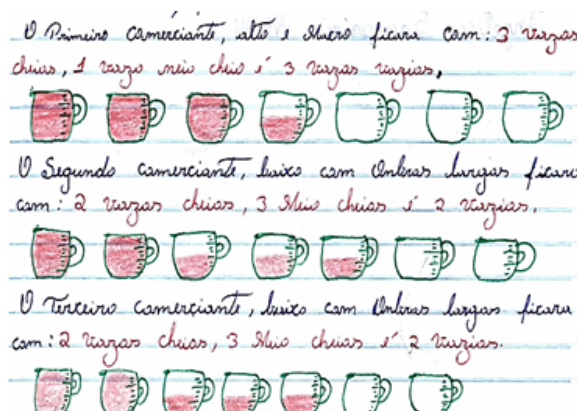 O Primeiro comerciante, alto e Macro ficara com: 3 vazos
cheias, 1 vazo meio cheio é 3 vazas vazias,
O Segundo comerciante, baixo com Ombras largas ficara
com: 2 vazas cheias, 3 Meio cheias é 2 vazias.
O Terceiro comerciante, baixo com Ombras largas ficara
com: 2 vazas cheias, 3 Meio cheias é 2 vazias.